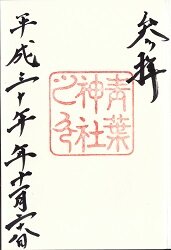 奉拝
青葉
神社
之印
平成三十年十一月六日